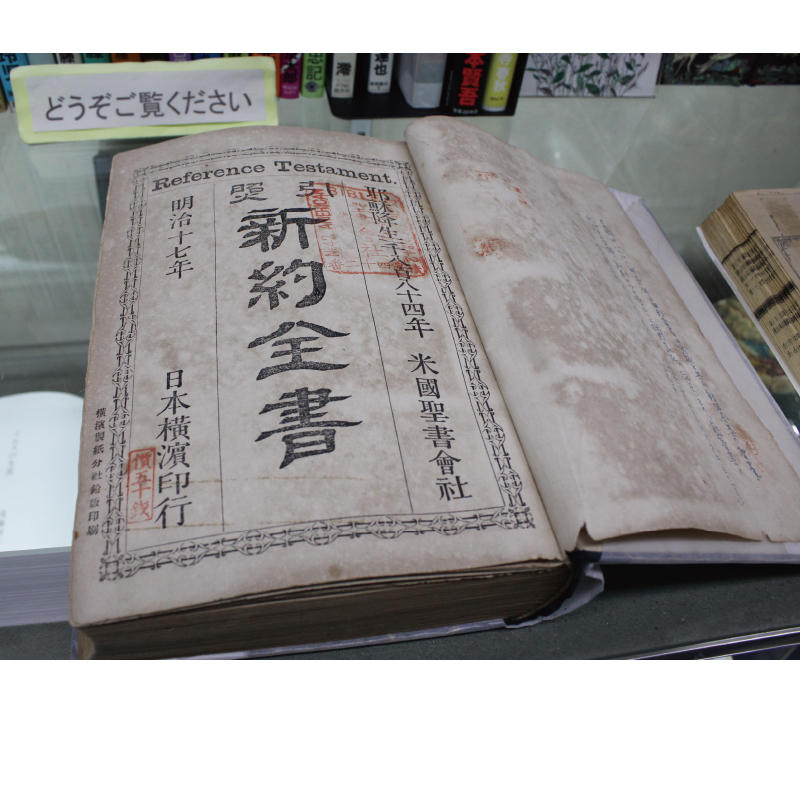 どうぞご覧ください
Reference Testament.
耶穌降生一千八百八十四年 米國聖書會社
引照
新約全書
明治十七年
日本橫濱印行
橫濱製紙分社鉛版印刷
價五十錢